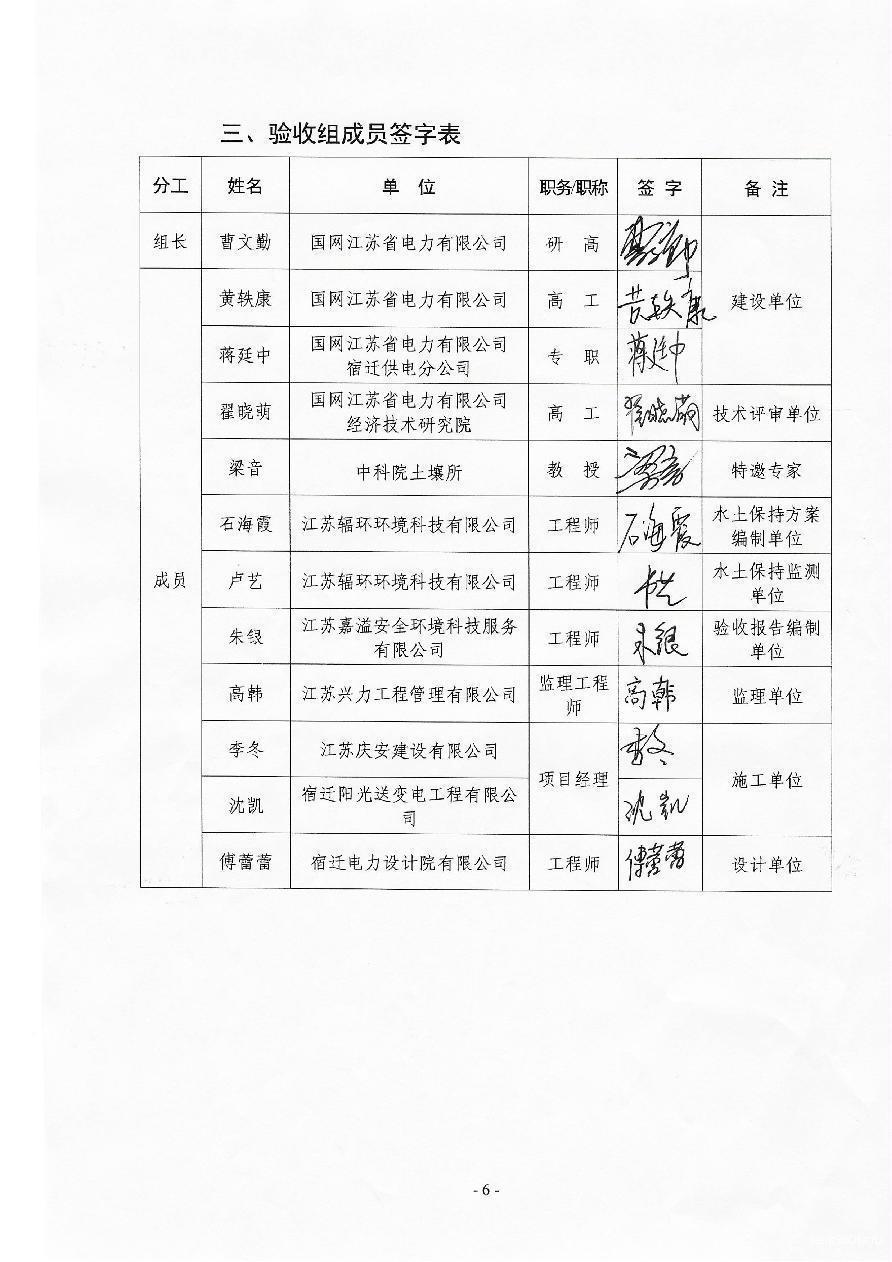 三、验收组成员签字表
分工 姓名 单 位 职务/职称 签 字 备 注
组长 曹文勤 国网江苏省电力有限公司 研 高
黄轶康 国网江苏省电力有限公司 高 工 黄轶康 建设单位
蒋延中 国网江苏省电力有限公司
宿迁供电分公司 专 职 蒋延中
翟晓萌 国网江苏省电力有限公司
经济技术研究院 高 工 翟晓萌 技术评审单位
梁音 中科院土壤所 教 授 梁音 特邀专家
石海霞 江苏辐环环境科技有限公司 工程师 石海霞 水土保持方案
编制单位
成员 卢艺 江苏辐环环境科技有限公司 工程师 水土保持监测
单位
朱银 江苏嘉溢安全环境科技服务
有限公司 工程师 朱银 验收报告编制
单位
高韩 江苏兴力工程管理有限公司 监理工程
师 高韩 监理单位
李冬 江苏庆安建设有限公司 李冬
项目经理 施工单位
沈凯 宿迁阳光送变电工程有限公
司 沈凯
傅蕾蕾 宿迁电力设计院有限公司 工程师 傅蕾蕾 设计单位
- 6 -